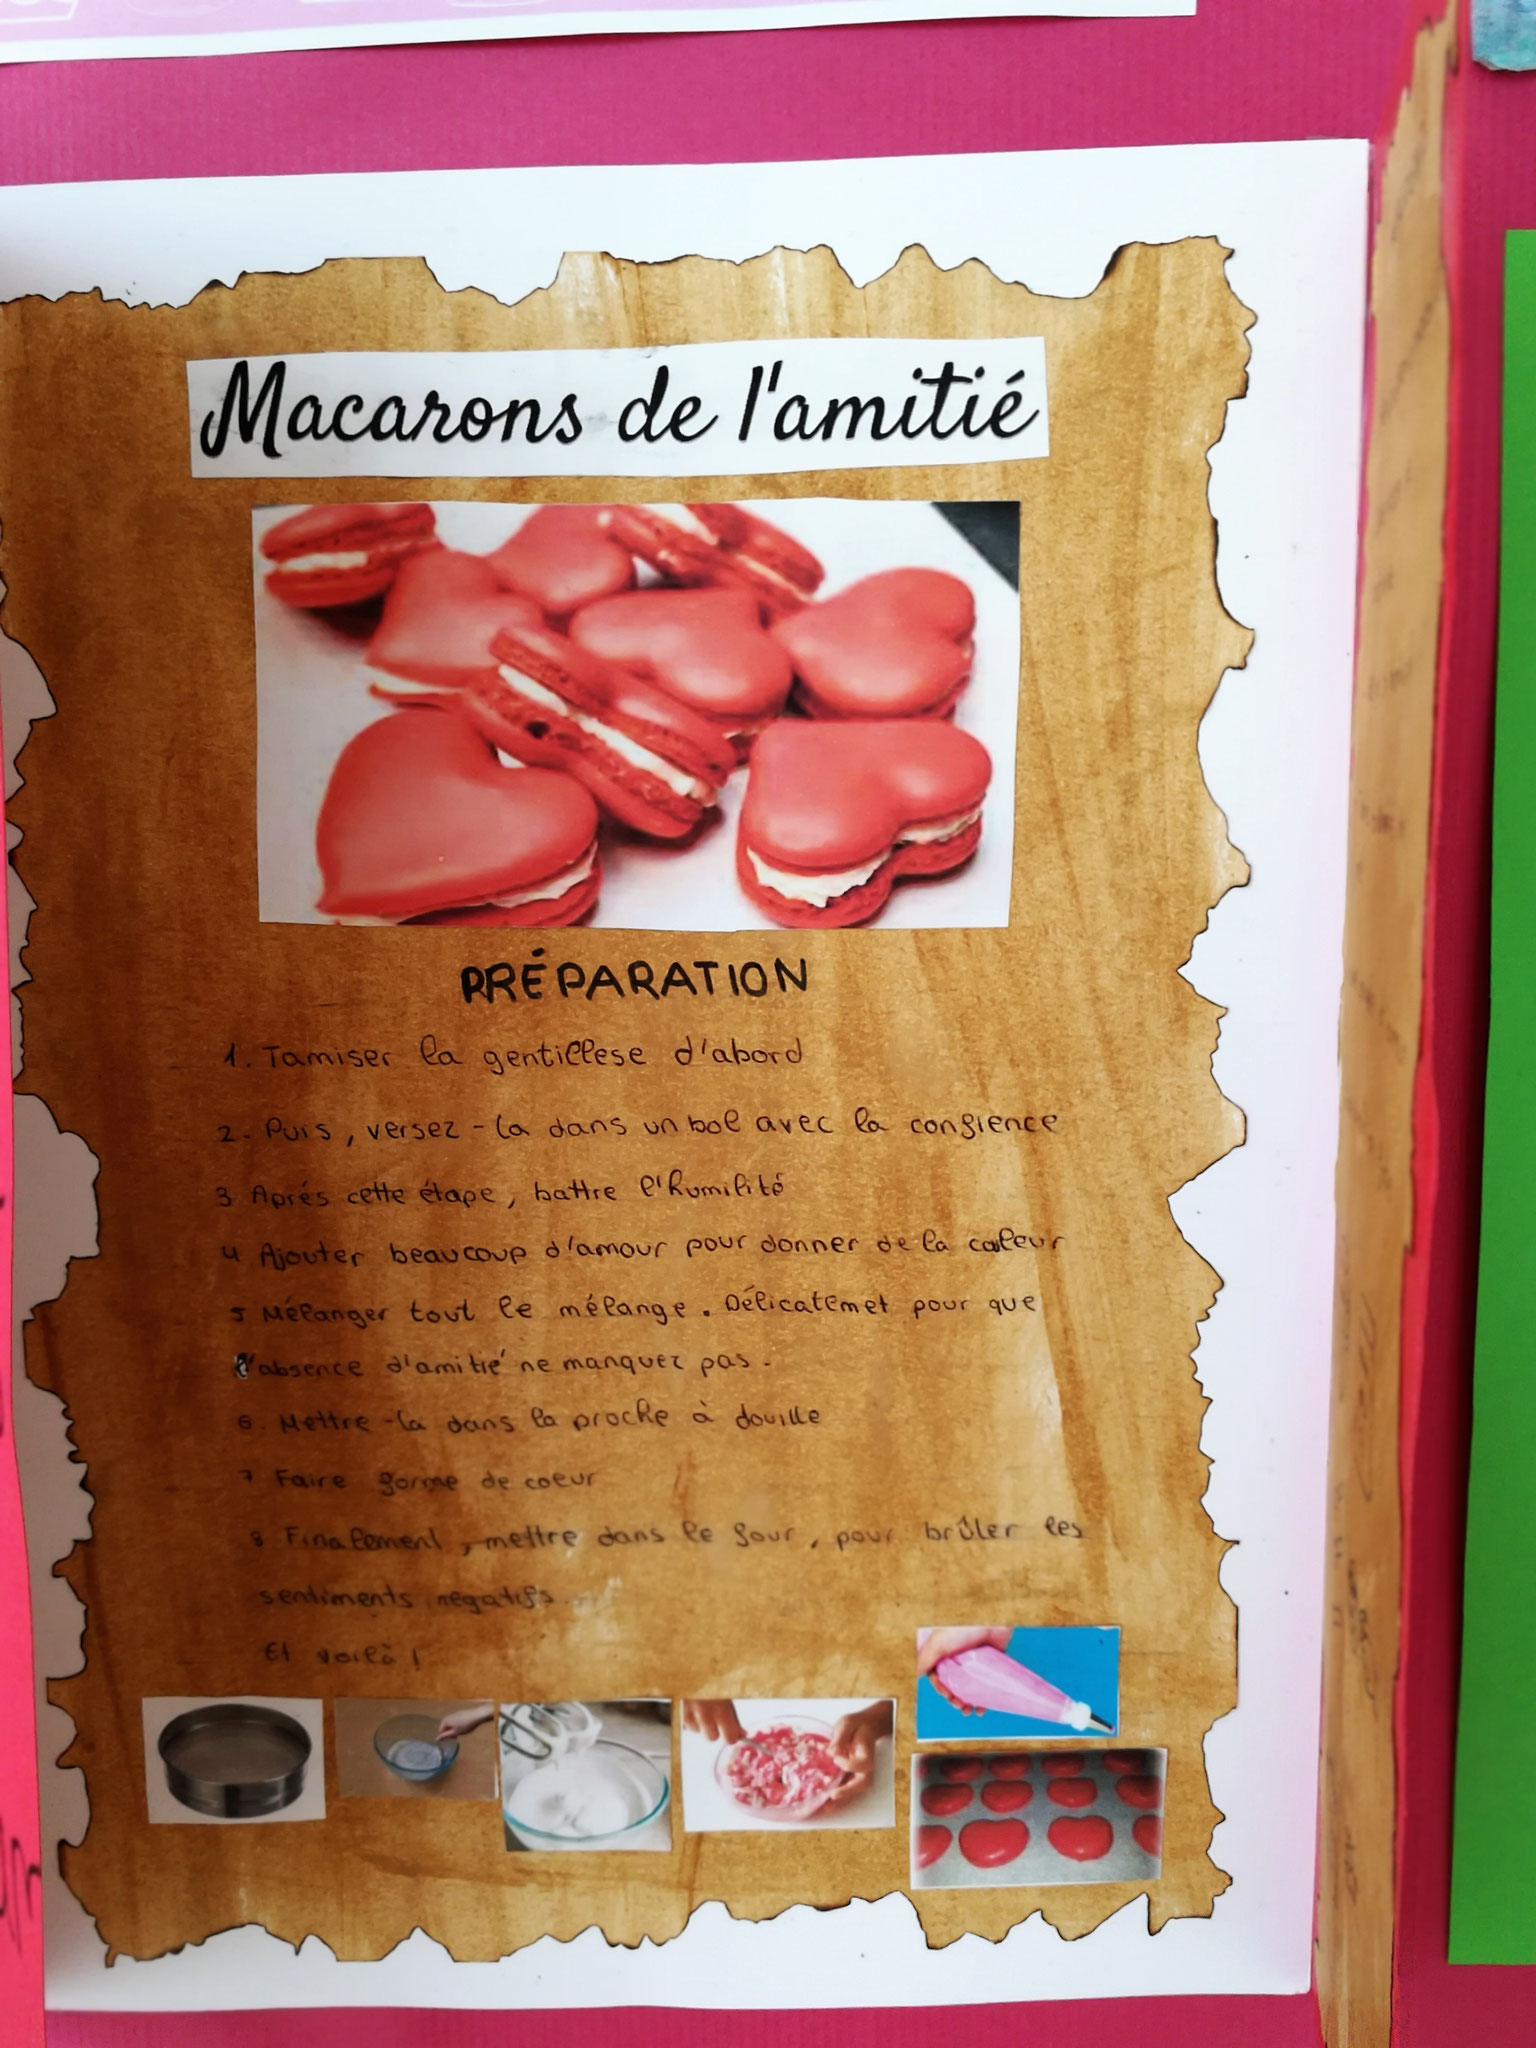 Macarons de l'amitié
PRÉPARATION
1. Tamiser la gentillese d'abord
2. Puis, versez-la dans un bol avec la confience
3 Aprés cette étape, battre l'humilité
4 Ajouter beaucoup d'amour pour donner de la caleur
5 Mélanger tout le mélange. Délicatemet pour que
l'absence d'amitié ne manquez pas.
6. Mettre-la dans la proche à douille
7 Faire forme de coeur
8 Finalement, mettre dans le four, pour brûler les
sentiments négatifs.
Et voilà!